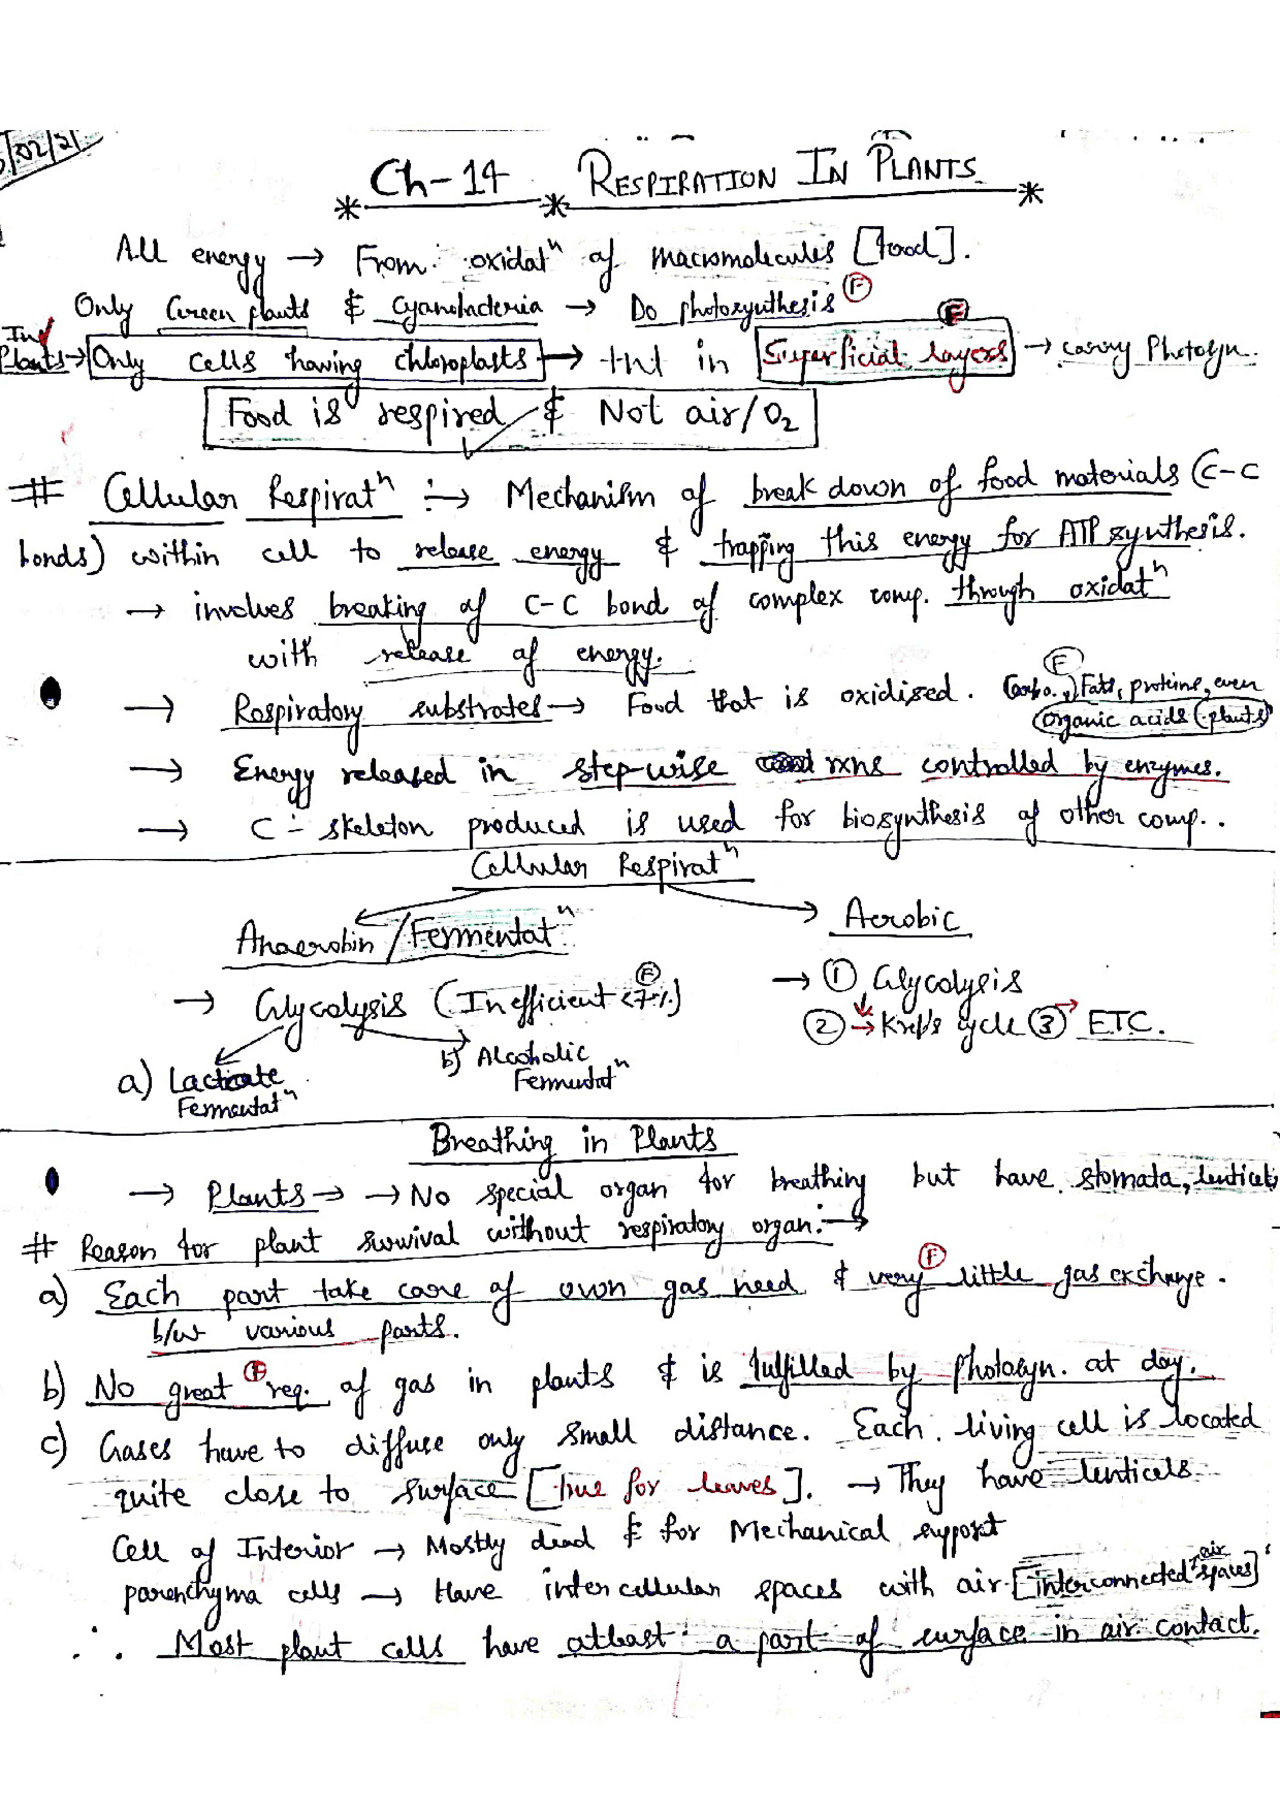 /02/21
Ch-14 RESPIRATION IN PLANTS
All energy → From oxidatⁿ of macromolecules [food].
Only Green plants & Cyanobacteria → Do photosynthesis (F)
In Plants → Only cells having chloroplasts → tht in Superficial layers (F) → carry Photosyn.
Food is respired & Not air/O₂
# Cellular Respiratⁿ :→ Mechanism of break down of food materials (C-C
bonds) within cell to release energy & trapping this energy for ATP synthesis.
→ involves breaking of C-C bond of complex comp. through oxidatⁿ
with release of energy.
→ Respiratory substrates → Food that is oxidised. (F) Carbo., Fats, proteins, even
organic acids (plants)
→ Energy released in step-wise rxns controlled by enzymes.
→ C-skeleton produced is used for biosynthesis of other comp..
Cellular Respiratⁿ
Anaerobin / Fermentatⁿ
Aerobic
→ Glycolysis (Inefficient <7%) (F)
→ ① Glycolysis
② → Kreb's cycle ③ → ETC.
a) Lactate Fermentatⁿ
b) Alcoholic Fermentatⁿ
Breathing in Plants
→ Plants → → No special organ for breathing but have stomata, lenticels
# Reason for plant survival without respiratory organ :→
a) Each part take care of own gas need & very (F) little gas exchange.
b/w various parts.
b) No great (F) req. of gas in plants & is fulfilled by photosyn. at day.
c) Gases have to diffuse only small distance. Each living cell is located
quite close to surface [true for leaves]. → They have lenticels
Cell of Interior → Mostly dead & for Mechanical support
parenchyma cells → Have intercellular spaces with air [interconnected air spaces]
∴ Most plant cells have atleast a part of surface in air contact.